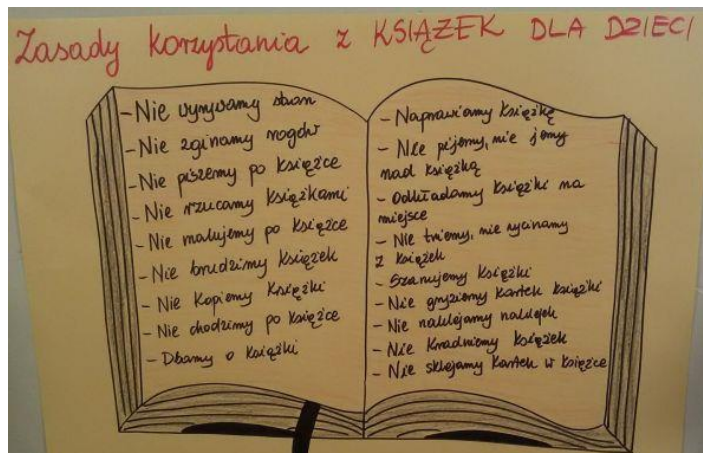 Zasady korzystania z KSIĄŻEK DLA DZIECI
- Nie wyrywamy stron
- Nie zginamy rogów
- Nie piszemy po książce
- Nie rzucamy książkami
- Nie malujemy po książce
- Nie brudzimy książek
- Nie kopiemy książki
- Nie chodzimy po książce
- Dbamy o książki
- Naprawiamy książkę
- Nie pijemy, nie jemy
nad książką
- Odkładamy książki na
miejsce
- Nie tniemy, nie wycinamy
z książek
- Szanujemy książki
- Nie gryziemy kartek książki
- Nie naklejamy naklejek
- Nie kradniemy książek
- Nie sklejamy kartek w książce